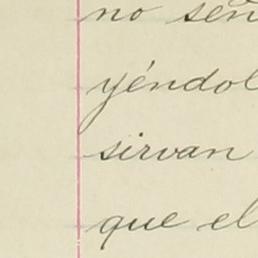 no señ
yéndol
sirvan
que el